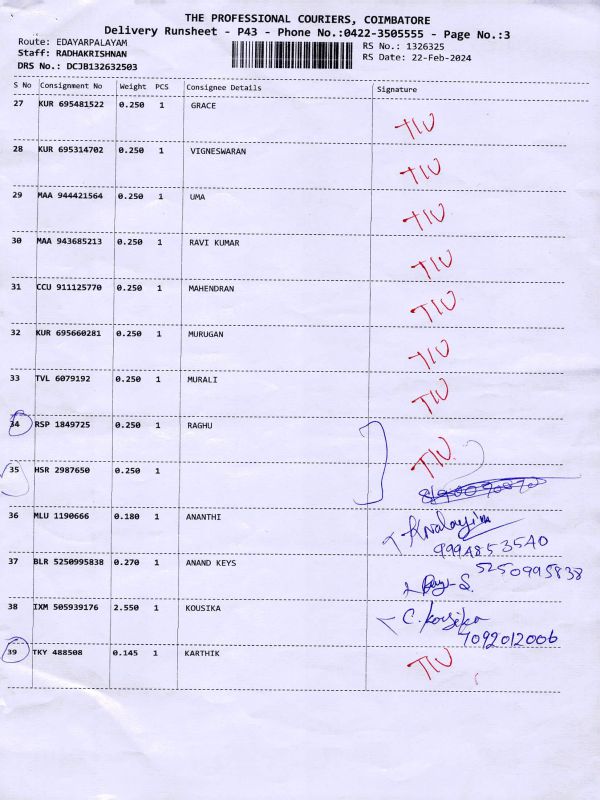 THE PROFESSIONAL COURIERS, COIMBATORE
Delivery Runsheet - P43 - Phone No.:0422-3505555 - Page No.:3
Route: EDAYARPALAYAM RS No.: 1326325
Staff: RADHAKRISHNAN RS Date: 22-Feb-2024
DRS No.: DCJB132632503
S No Consignment No Weight PCS Consignee Details Signature
27 KUR 695481522 0.250 1 GRACE
TIU
28 KUR 695314702 0.250 1 VIGNESWARAN
TIU
29 MAA 944421564 0.250 1 UMA
TIU
30 MAA 943685213 0.250 1 RAVI KUMAR
TIU
31 CCU 911125770 0.250 1 MAHENDRAN
TIU
32 KUR 695660281 0.250 1 MURUGAN
TIU
33 TVL 6079192 0.250 1 MURALI
TIU
34 RSP 1849725 0.250 1 RAGHU
TIU
35 HSR 2987650 0.250 1
36 MLU 1190666 0.180 1 ANANTHI
9994853540
37 BLR 5250995838 0.270 1 ANAND KEYS 5250995838
38 IXM 505939176 2.550 1 KOUSIKA C. Kousika
7092012006
39 TKY 488508 0.145 1 KARTHIK TIU